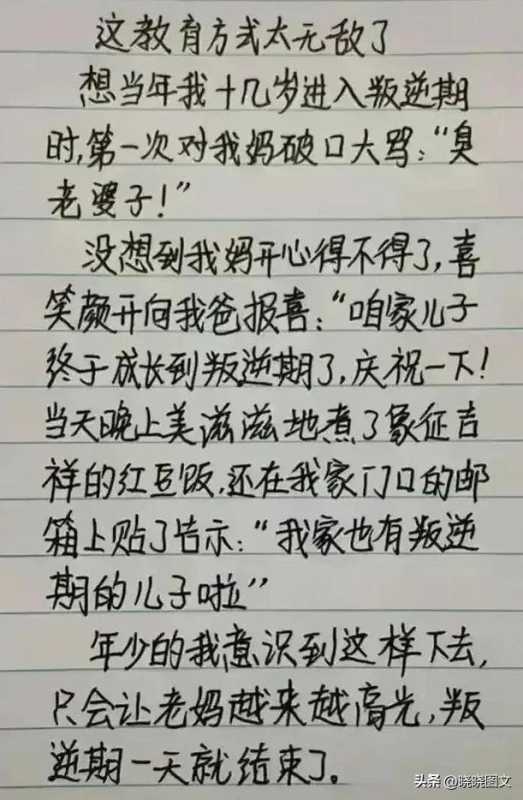 这教育方式太无敌了
想当年我十几岁进入叛逆期
时,第一次对我妈破口大骂:“臭
老婆子!”
没想到我妈开心得不得了,喜
笑颜开向我爸报喜:“咱家儿子
终于成长到叛逆期了,庆祝一下!
当天晚上美滋滋地煮了象征吉
祥的红豆饭,还在我家门口的邮
箱上贴了告示:“我家也有叛逆
期的儿子啦”
年少的我意识到这样下去,
只会让老妈越来越高光,叛
逆期一天就结束了。
头条@晓晓图文